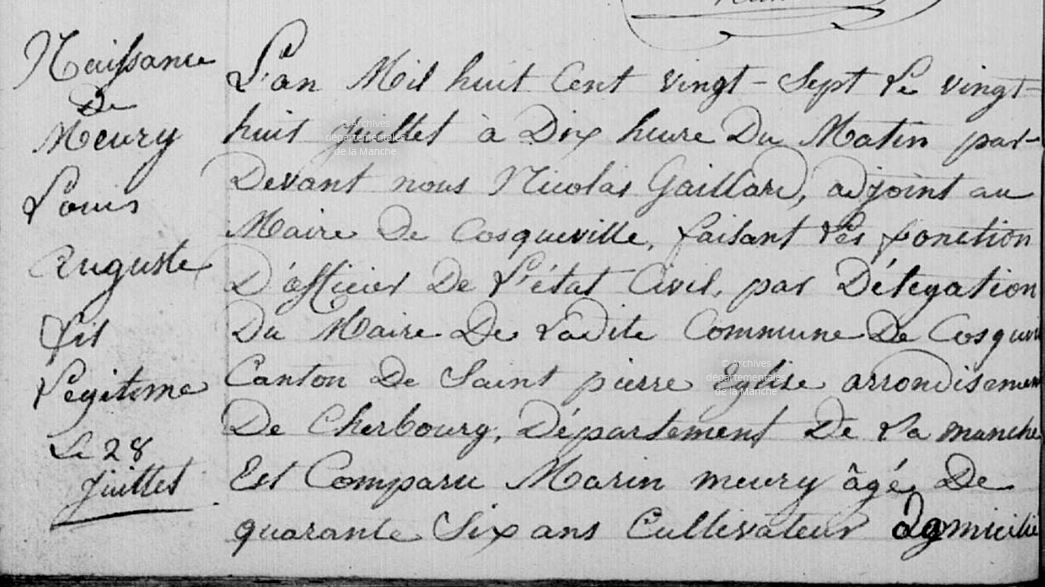 Naissance
De
Meury
Louis
Auguste
fils
Légitime
Le 28
juillet
L'an Mil huit Cent vingt-Sept Le vingt-
huit juillet à Dix heure Du Matin par-
Devant nous Nicolas Gaillard, adjoint au
Maire De Cosqueville, faisant Les fonction
D'officier De L'état Civil, par Délégation
Du Maire De Ladite Commune De Cosquevi
Canton De Saint pierre Eglise arrondisement
De Cherbourg, Département De La manche
Est Comparu Marin meury âgé De
quarante Six ans Cultivateur domicilié
© Archives
départementales
de la Manche
© Archives
départementales
de la Manche